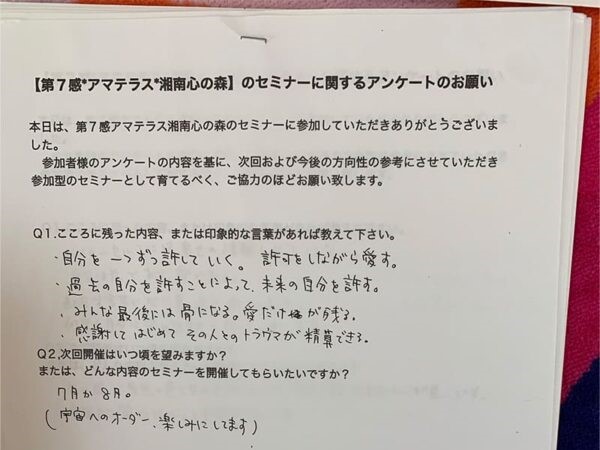 【第７感*アマテラス*湘南心の森】のセミナーに関するアンケートのお願い
本日は、第７感アマテラス湘南心の森のセミナーに参加していただきありがとうございま
した。
参加者様のアンケートの内容を基に、次回および今後の方向性の参考にさせていただき
参加型のセミナーとして育てるべく、ご協力のほどお願い致します。
Ｑ1.こころに残った内容、または印象的な言葉があれば教えて下さい。
・自分を一つずつ許していく。許可をしながら愛す。
・過去の自分を許すことによって、未来の自分を許す。
・みんな最後には骨になる。愛だけが残る。
・感謝してはじめてその人とのトラウマが精算できる。
Ｑ2,次回開催はいつ頃を望みますか？
または、どんな内容のセミナーを開催してもらいたいですか？
7月か8月。
(宇宙へのオーダー、楽しみにしてます)